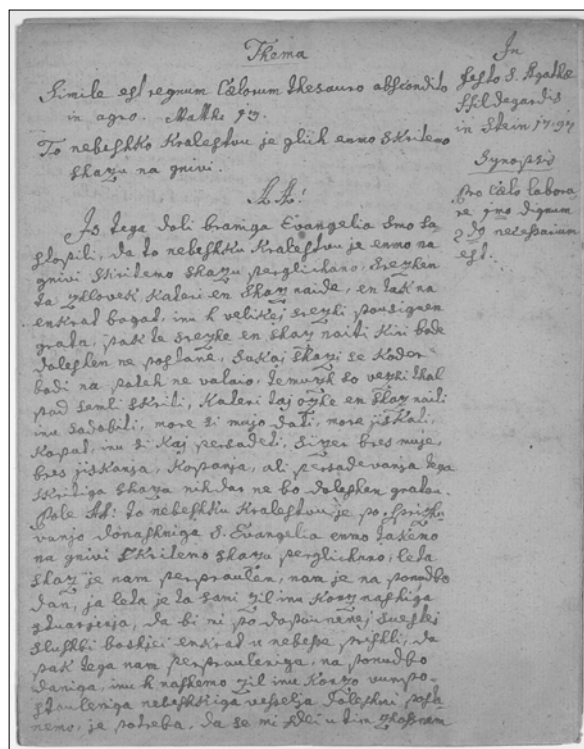 Thema
Simile est regnum Cœlorum thesauro abscondito
in agro. Matthi 13
To nebeshko Kralestvu je glih enmo skritemo
shazu na gnivi.
AA!
Is tega doli braniga Evangelia smo sa
stopili, da to nebeshku Kralestvu je enmo na
gnivi skritemo shazu perglichano, srezhen
ta zhlovek kateri en shaz naide, en tak na
enkrat bogat, inu k velikej srezhi
grata, pak te srezhe en shaz naiti kiri bode
doleshen ne postane, sakaj shazi se koder
bodi na poteh ne valaio, temuzh so vezhi thal
pod semli skriti, kateri taj ozhe en shaz naiti
inu sadobiti, more si mujo dati, more jiskati,
kopat, inu si kaj persadeti, sizer bres muje,
bres jiskanja, kopanja, ali persadevanja tega
skritiga shaza nikdar ne bo doleshen gratou.
Pole AA: to nebeshku Kralestvu je po
vanjo donashniga S. Evangelia enmo takemo
na gnivi skritemo shazu perglichano, leta
shaz je nam perprаulen, nam je na ponudbo
dan, ja leta je ta sami zil inu konz nashiga
stvarjenja, da bi mi po dopounanej suestej
slushbi boshjei enkrat u nebese prishli, da
pak tega nam perprauleniga, na ponudbo
daniga, inu k nashemo zil inu konzo vunpo-
stauleniga nebeshkiga vesselja doleshni posta
nemo, je potreba, da se mi sdei u tim
In
festo S. Agathæ
Hildegardis
in Stein 1797
Synopsis
Pro Cœlo labora-
re 1mo dignum
2do necessarium
est.